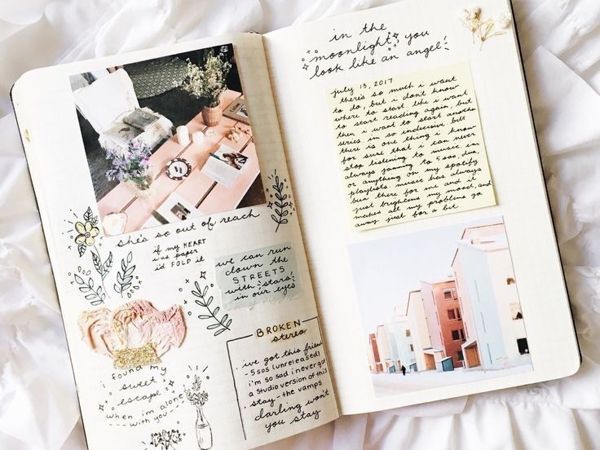 she's so out of reach
if my HEART
was paper
i'd FOLD it
we can run
down the
STREETS
with stars
in our eyes
BROKEN
stereo
• i've got this friend
5sos (unreleased)
i'm so sad i never got
a studio version of this
• stay - the vamps
darling won't
you stay
i found my
sweet
escape
when i'm alone
with you
in the
moonlight you
look like an angel
july 13, 2017
there's so much i want
to do, but i don't know
where to start. like i want
to start reading again, but
then i want to start another
series im so indecisive. but
there is one thing i know
for sure that i can never
stop listening to music. im
always jamming to 5sos,
or anything on my spotify
playlists. music has always
been there for me and it
just brightens my mood and
makes all my problems go
away just for a bit